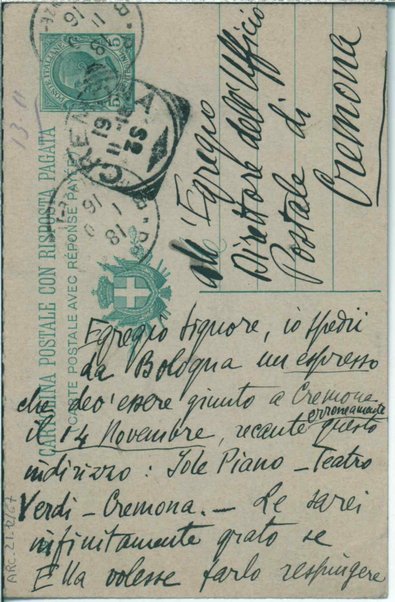 CARTOLINA POSTALE CON RISPOSTA PAGATA
CARTE POSTALE AVEC RÉPONSE PAYÉE
POSTE ITALIANE
CREMONA
13.11
All' Egregio
Direttore dell' Ufficio
Postale di
Cremona
Egregio Signore, io spedii
da Bologna un espresso
che deo' essere giunto a Cremona
erroneamente
il 14 Novembre, recante questo
indirizzo: Iole Piano - Teatro
Verdi - Cremona. - Le sarei
infinitamente grato se
Ella volesse farlo respingere